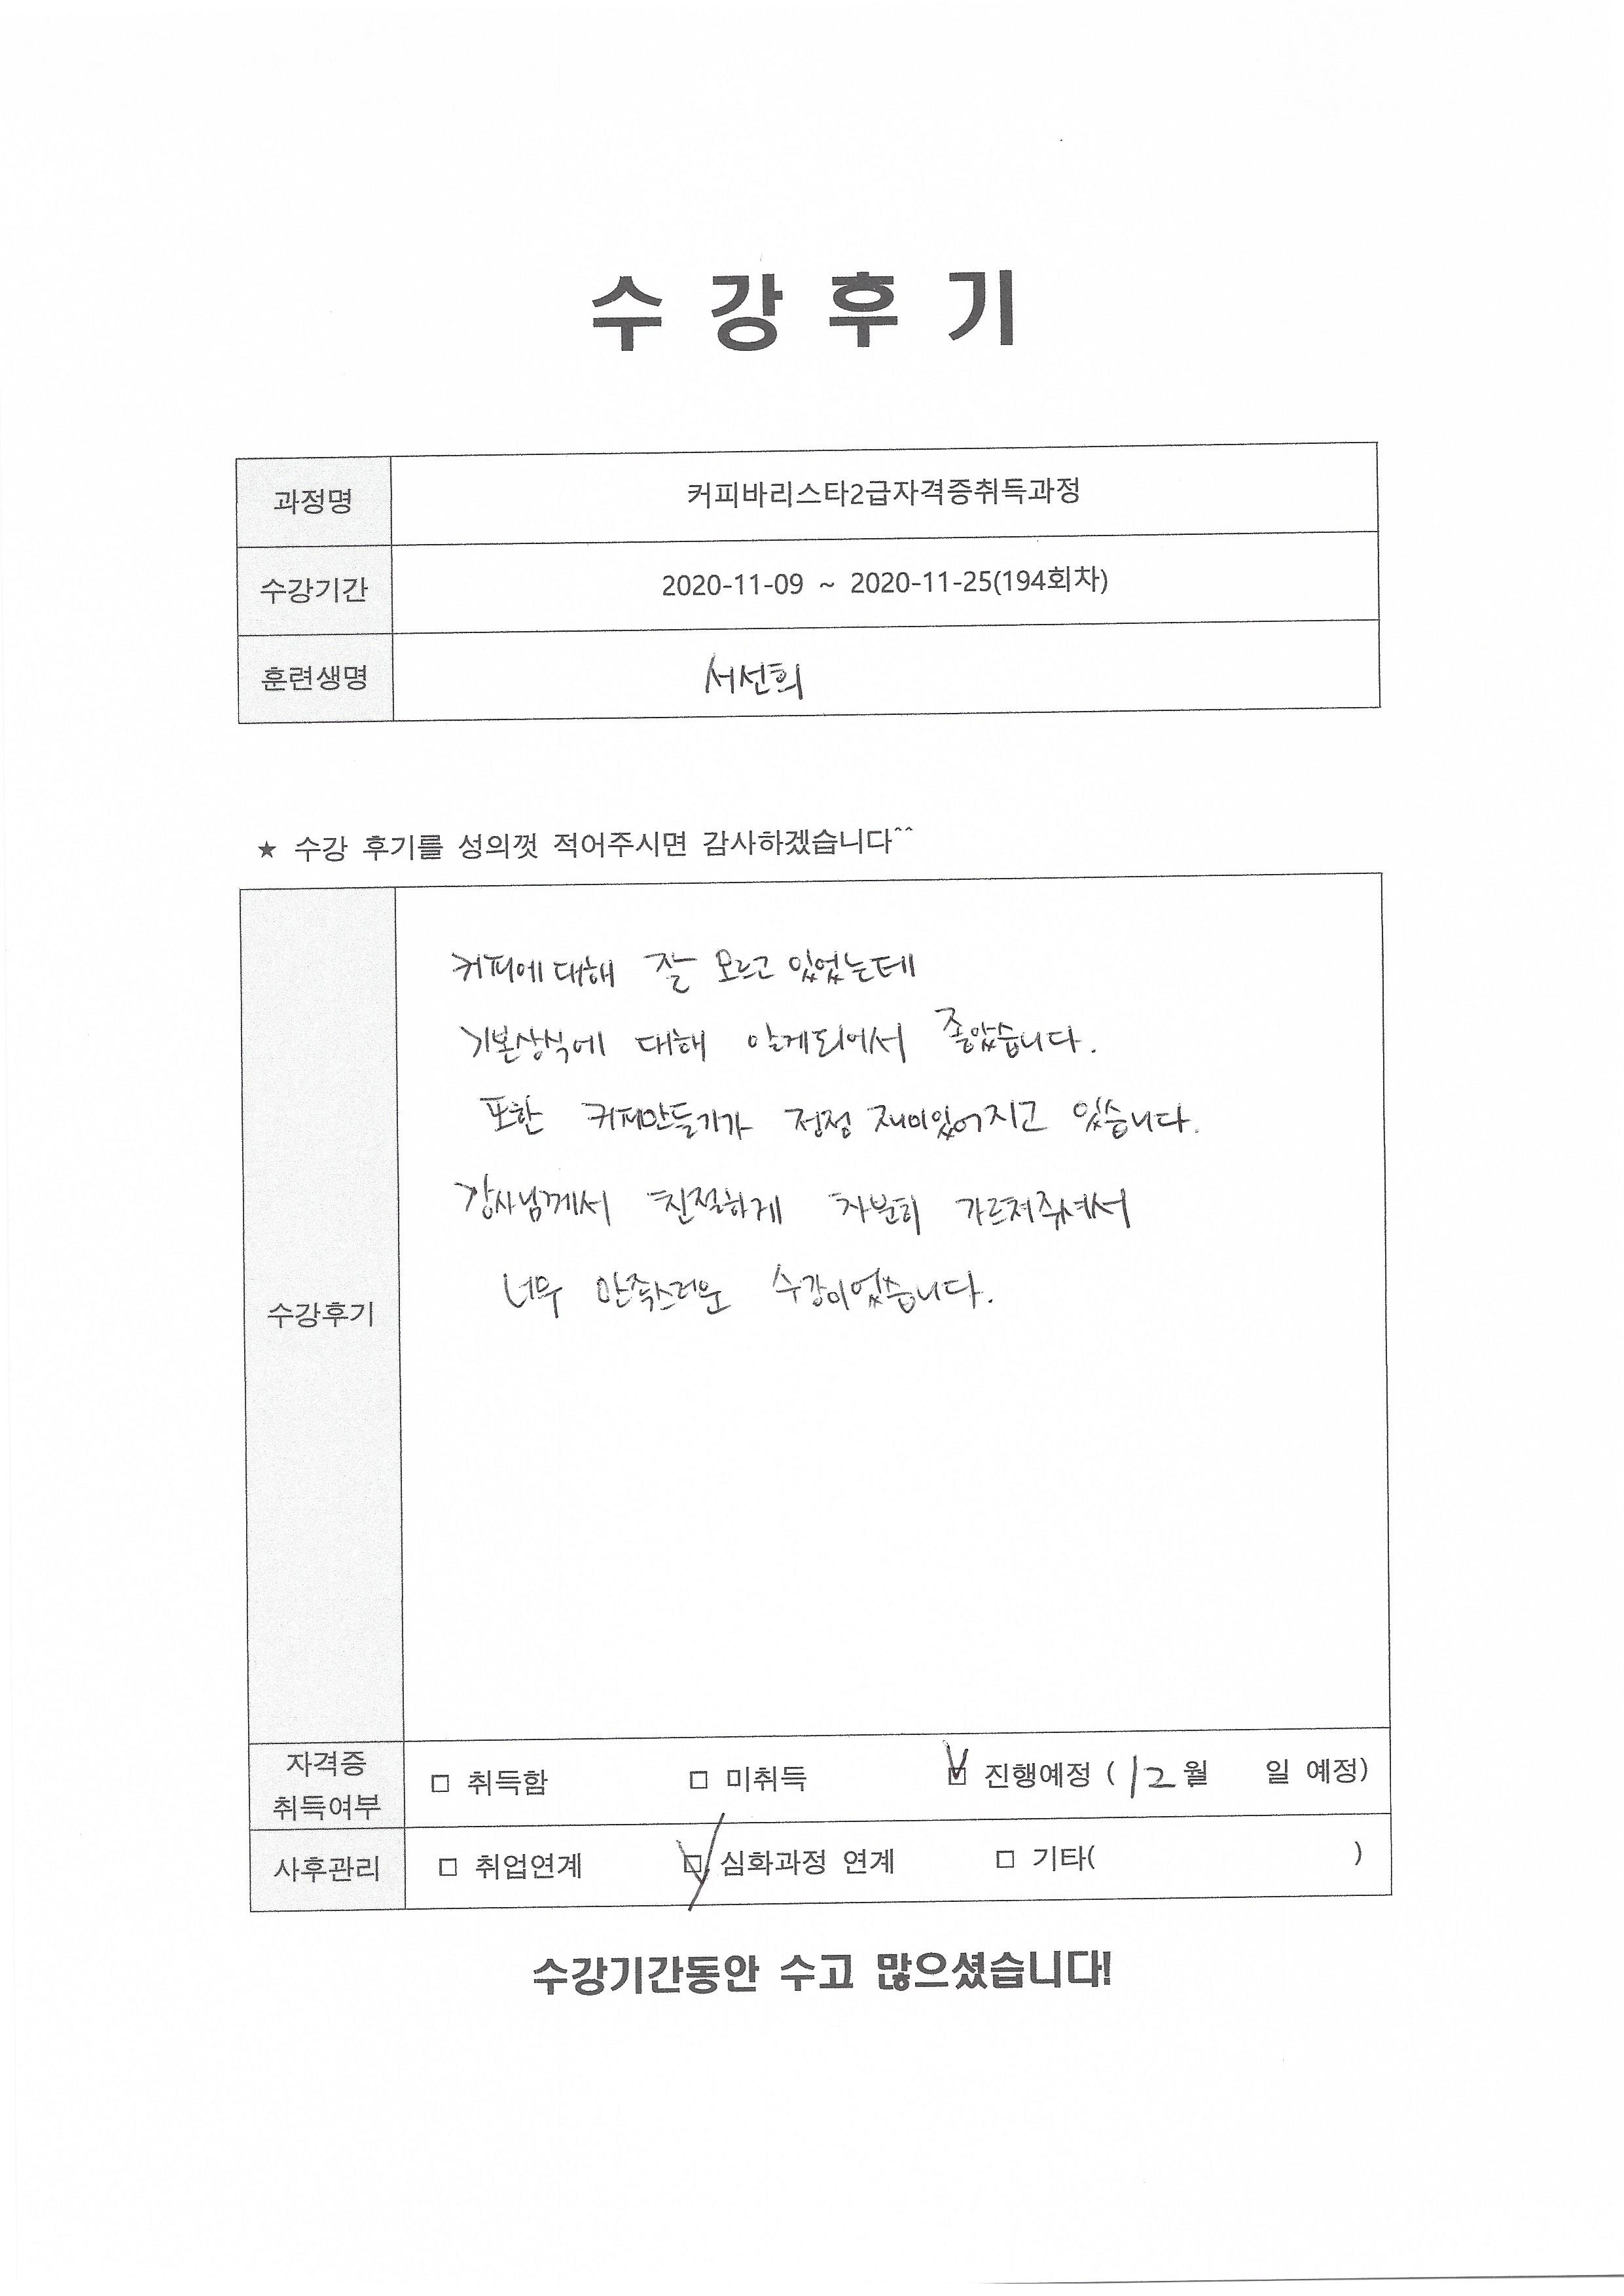 수 강 후 기
과정명 커피바리스타2급자격증취득과정
수강기간 2020-11-09 ~ 2020-11-25(194회차)
훈련생명 서선희
★ 수강 후기를 성의껏 적어주시면 감사하겠습니다^^
커피에 대해 잘 모르고 있었는데
기본상식에 대해 알게되어서 좋았습니다.
또한 커피만들기가 점점 재미있어지고 있습니다.
강사님께서 친절하게 차분히 가르쳐주셔서
너무 만족스러운 수강이었습니다.
수강후기
자격증
취득여부
□ 취득함 □ 미취득 ☑ 진행예정 ( 12월 일 예정)
사후관리 □ 취업연계 ☑ 심화과정 연계 □ 기타( )
수강기간동안 수고 많으셨습니다!